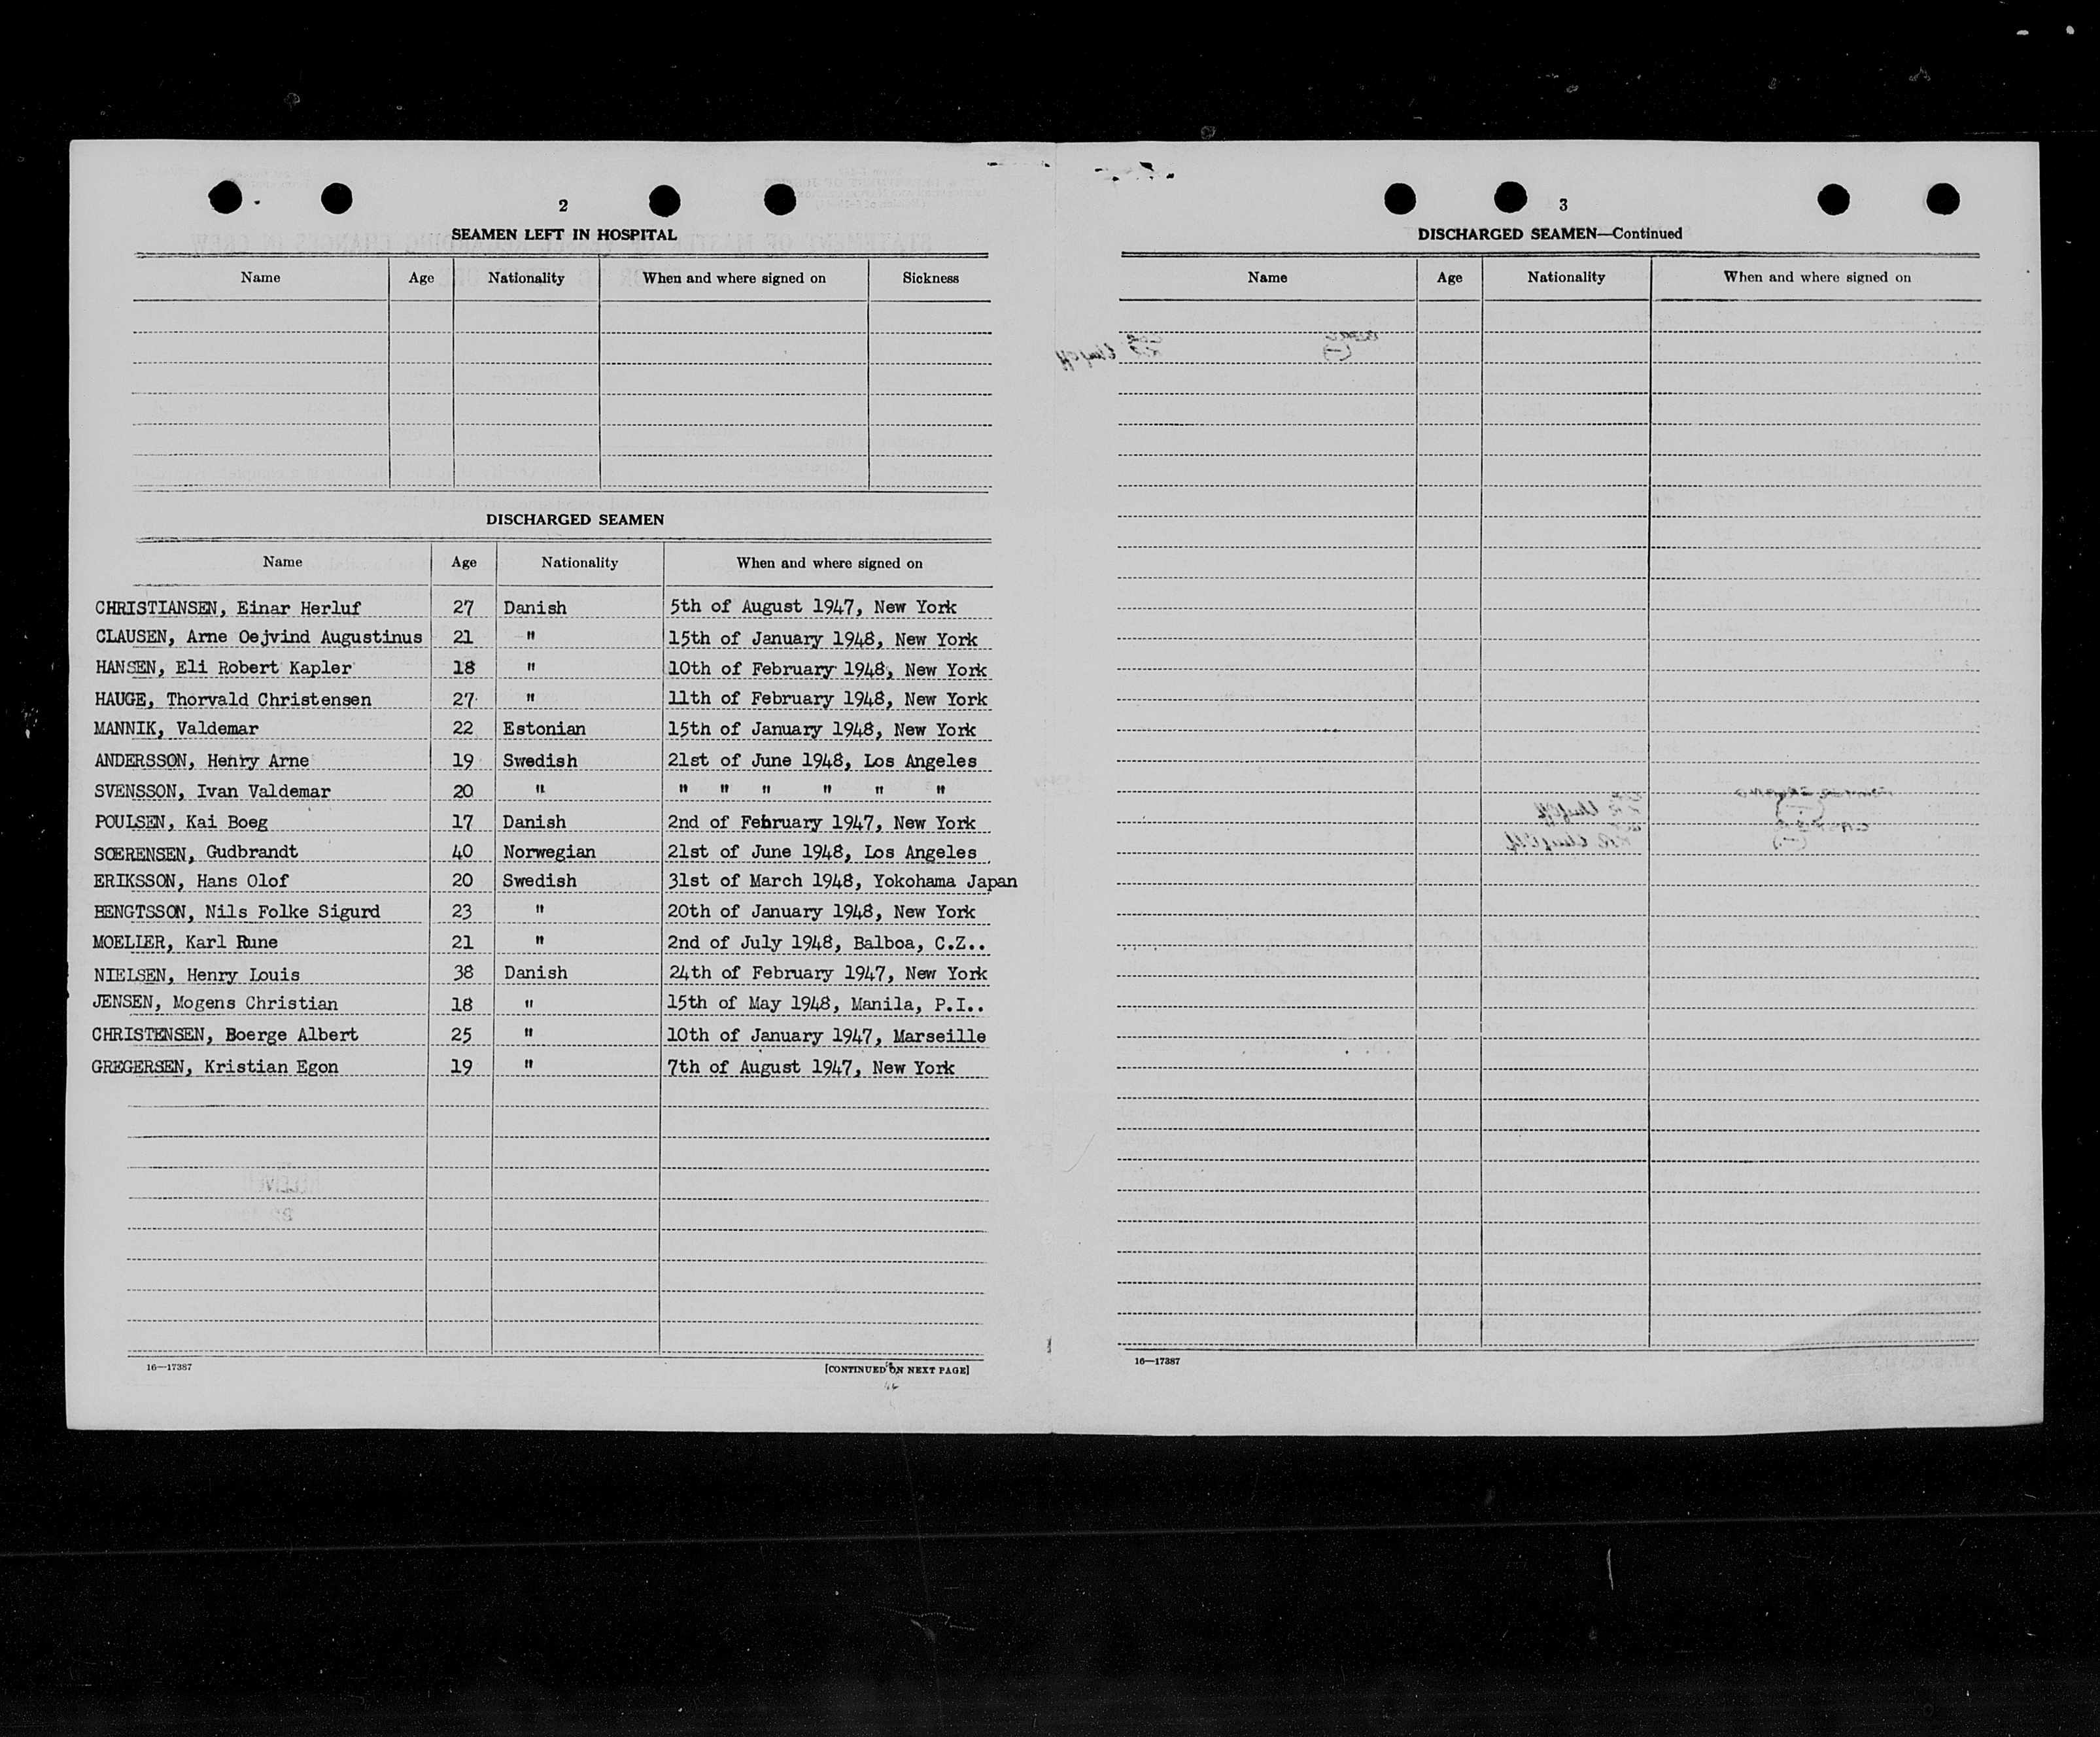 2
SEAMEN LEFT IN HOSPITAL
Name Age Nationality When and where signed on Sickness
DISCHARGED SEAMEN
Name Age Nationality When and where signed on
CHRISTIANSEN, Einar Herluf 27 Danish 5th of August 1947, New York
CLAUSEN, Arne Oejvind Augustinus 21 " 15th of January 1948, New York
HANSEN, Eli Robert Kapler 18 " 10th of February 1948, New York
HAUGE, Thorvald Christensen 27 " 11th of February 1948, New York
MANNIK, Valdemar 22 Estonian 15th of January 1948, New York
ANDERSSON, Henry Arne 19 Swedish 21st of June 1948, Los Angeles
SVENSSON, Ivan Valdemar 20 " " " " " " "
POULSEN, Kai Boeg 17 Danish 2nd of February 1947, New York
SOERENSEN, Gudbrandt 40 Norwegian 21st of June 1948, Los Angeles
ERIKSSON, Hans Olof 20 Swedish 31st of March 1948, Yokohama Japan
BENGTSSON, Nils Folke Sigurd 23 " 20th of January 1948, New York
MOELIER, Karl Rune 21 " 2nd of July 1948, Balboa, C.Z..
NIELSEN, Henry Louis 38 Danish 24th of February 1947, New York
JENSEN, Mogens Christian 18 " 15th of May 1948, Manila, P.I..
CHRISTENSEN, Boerge Albert 25 " 10th of January 1947, Marseille
GREGERSEN, Kristian Egon 19 " 7th of August 1947, New York
16—17387 [CONTINUED ON NEXT PAGE]
3
DISCHARGED SEAMEN—Continued
Name Age Nationality When and where signed on
16—17387